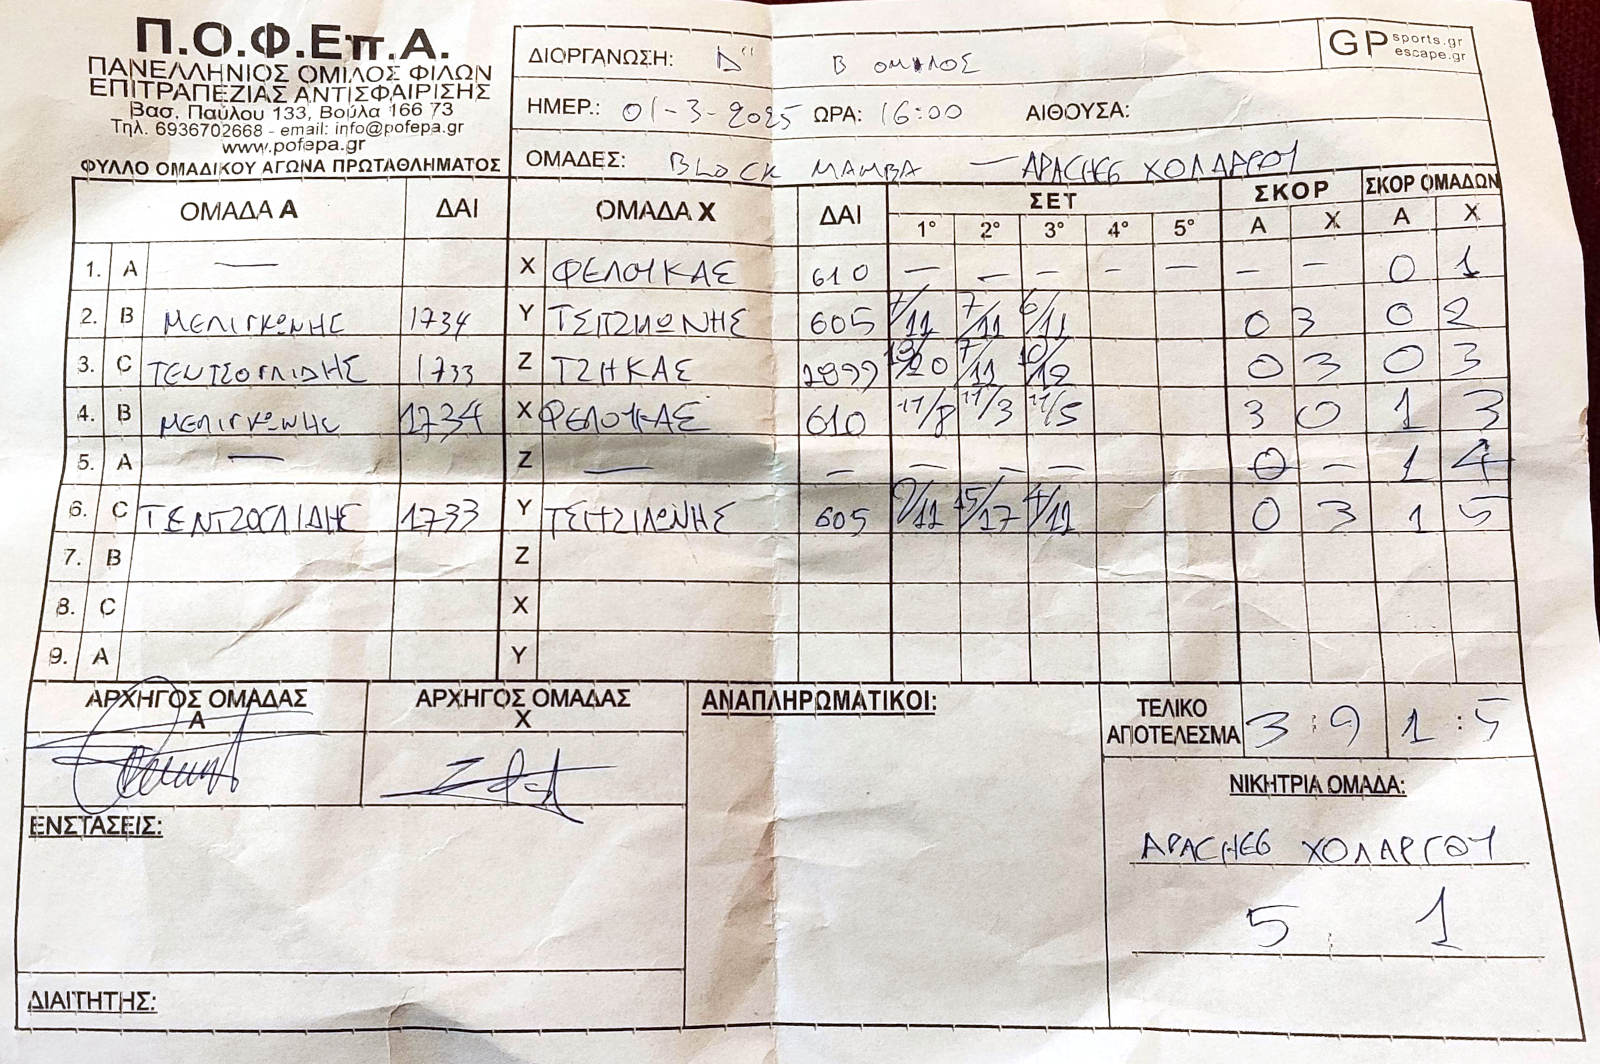 Π.Ο.Φ.Επ.Α.
ΠΑΝΕΛΛΗΝΙΟΣ ΟΜΙΛΟΣ ΦΙΛΩΝ
ΕΠΙΤΡΑΠΕΖΙΑΣ ΑΝΤΙΣΦΑΙΡΙΣΗΣ
Βασ. Παύλου 133, Βούλα 166 73
Τηλ. 6936702668 - email: info@pofepa.gr
www.pofepa.gr
ΦΥΛΛΟ ΟΜΑΔΙΚΟΥ ΑΓΩΝΑ ΠΡΩΤΑΘΛΗΜΑΤΟΣ
ΔΙΟΡΓΑΝΩΣΗ: Δ" Β ΟΜΙΛΟΣ
GP sports.gr
escape.gr
ΗΜΕΡ.: 01-3-2025 ΩΡΑ: 16:00 ΑΙΘΟΥΣΑ:
ΟΜΑΔΕΣ: BLOCK MAMBA — APACHES ΧΟΛΑΡΓΟΥ
ΟΜΑΔΑ Α ΔΑΙ ΟΜΑΔΑ Χ ΔΑΙ ΣΕΤ ΣΚΟΡ ΣΚΟΡ ΟΜΑΔΩΝ
1° 2° 3° 4° 5° Α Χ Α Χ
1. A — X ΦΕΛΟΥΚΑΣ 610 — — — — — — — 0 1
2. B ΜΕΛΙΓΚΩΝΗΣ 1734 Y ΤΣΙΤΣΙΛΩΝΗΣ 605 7/11 7/11 6/11 0 3 0 2
3. C ΤΕΝΤΣΟΓΛΙΔΗΣ 1733 Z ΤΖΗΚΑΣ 2899 18/20 7/11 10/12 0 3 0 3
4. B ΜΕΛΙΓΚΩΝΗΣ 1734 X ΦΕΛΟΥΚΑΣ 610 11/8 11/3 11/5 3 0 1 3
5. A — Z — — — — — 0 — 1 4
6. C ΤΕΝΤΖΟΓΛΙΔΗΣ 1733 Y ΤΣΙΤΣΙΛΩΝΗΣ 605 9/11 15/17 4/11 0 3 1 5
7. B Z
8. C X
9. A Y
ΑΡΧΗΓΟΣ ΟΜΑΔΑΣ Α
ΑΡΧΗΓΟΣ ΟΜΑΔΑΣ Χ
ΑΝΑΠΛΗΡΩΜΑΤΙΚΟΙ:
ΤΕΛΙΚΟ ΑΠΟΤΕΛΕΣΜΑ 3 : 9 1 : 5
ΕΝΣΤΑΣΕΙΣ:
ΝΙΚΗΤΡΙΑ ΟΜΑΔΑ:
APACHES ΧΟΛΑΡΓΟΥ
5 : 1
ΔΙΑΙΤΗΤΗΣ: